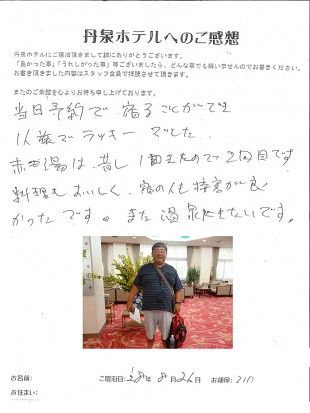 丹泉ホテルへのご感想
丹泉ホテルにご宿泊頂きまして誠にありがとうございます。
「良かった事」「うれしかった事」等ございましたら、どんな事でも構いませんのでお書きください。
お書き頂きました内容はスタッフ全員で拝読させて頂きます。
またのご来館を心よりお待ち申し上げております。
当日予約で宿ることができ
ラッキーでした。
赤湯は、昔し1回きたので2回目です
料理もおいしく、宿の人も接客が良
かったです。また温泉にきたいです。
お名前: ご宿泊日: 28年 8月26日 お部屋: 210
お住まい: